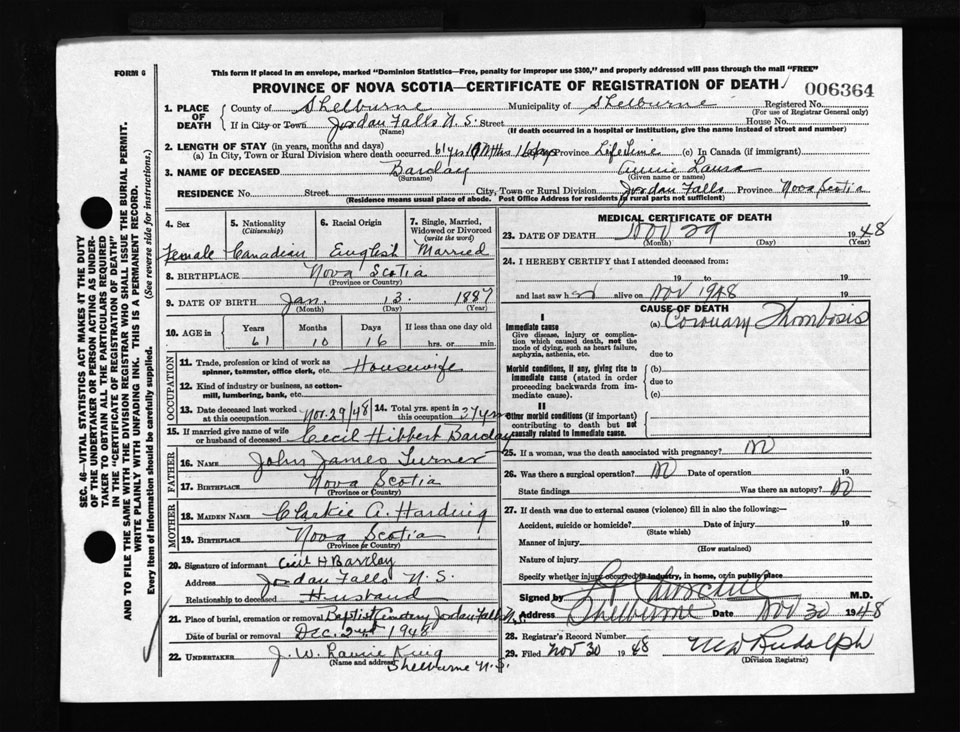 FORM 6
This form if placed in an envelope, marked "Dominion Statistics—Free, penalty for improper use $300," and properly addressed will pass through the mail "FREE"
PROVINCE OF NOVA SCOTIA—CERTIFICATE OF REGISTRATION OF DEATH
006364
SEC. 46—VITAL STATISTICS ACT MAKES IT THE DUTY
OF THE UNDERTAKER OR PERSON ACTING AS UNDER-
TAKER TO OBTAIN ALL THE PARTICULARS REQUIRED
IN THE "CERTIFICATE OF REGISTRATION OF DEATH"
AND TO FILE THE SAME WITH THE DIVISION REGISTRAR WHO SHALL ISSUE THE BURIAL PERMIT.
WRITE PLAINLY WITH UNFADING INK. THIS IS A PERMANENT RECORD.
Every item of information should be carefully supplied. (See reverse side for instructions.)
1. PLACE OF DEATH
County of Shelburne Municipality of Shelburne Registered No.
(For use of Registrar General only)
If in City or Town Jordan Falls N.S. Street House No.
(Name) (If death occurred in a hospital or institution, give the name instead of street and number)
2. LENGTH OF STAY (in years, months and days)
(a) In City, Town or Rural Division where death occurred 61 yrs 10 Mths 16 days Province Life Time (c) In Canada (if immigrant)
3. NAME OF DECEASED Barclay Annie Laura
(Surname) (Given name or names)
RESIDENCE No. Street City, Town or Rural Division Jordan Falls Province Nova Scotia
(Residence means usual place of abode. Post Office Address for residents in rural parts not sufficient)
4. Sex
Female
5. Nationality
(Citizenship)
Canadian
6. Racial Origin
English
7. Single, Married,
Widowed or Divorced
(write the word)
Married
8. BIRTHPLACE Nova Scotia
(Province or Country)
9. DATE OF BIRTH Jan. 13. 1887
(Month) (Day) (Year)
10. AGE in Years Months Days If less than one day old
61 10 16 hrs. or min.
OCCUPATION
11. Trade, profession or kind of work as
spinner, teamster, office clerk, etc. Housewife
12. Kind of industry or business, as cotton-
mill, lumbering, bank, etc.
13. Date deceased last worked
at this occupation Nov. 29/48
14. Total yrs. spent in
this occupation 27 yrs
15. If married give name of wife
or husband of deceased Cecil Hibbert Barclay
FATHER
16. NAME John James Turner
17. BIRTHPLACE Nova Scotia
(Province or Country)
MOTHER
18. MAIDEN NAME Clarkie A. Harding
19. BIRTHPLACE Nova Scotia
(Province or Country)
20. Signature of informant Cecil H Barclay
Address Jordan Falls N.S.
Relationship to deceased Husband
21. Place of burial, cremation or removal Baptist Cemetery Jordan Falls N.S.
Date of burial or removal Dec. 2nd 1948
22. UNDERTAKER J. W. King
(Name and address) Shelburne N.S.
MEDICAL CERTIFICATE OF DEATH
23. DATE OF DEATH Nov 29 1948
(Month) (Day) (Year)
24. I HEREBY CERTIFY that I attended deceased from:
19 to 19
and last saw h er alive on Nov 1948 19
CAUSE OF DEATH
I
Immediate cause
Give disease, injury or complica-
tion which caused death, not the
mode of dying, such as heart failure,
asphyxia, asthenia, etc.
(a) Coronary Thombosis
due to
Morbid conditions, if any, giving rise to
immediate cause (stated in order
proceeding backwards from im-
mediate cause).
(b)
due to
(c)
II
Other morbid conditions (if important)
contributing to death but not
causally related to immediate cause.
25. If a woman, was the death associated with pregnancy? No
26. Was there a surgical operation? No Date of operation 19
State findings Was there an autopsy? No
27. If death was due to external causes (violence) fill in also the following:—
Accident, suicide or homicide? Date of injury 19
(State which)
Manner of injury
(How sustained)
Nature of injury
Specify whether injury occurred in industry, in home, or in public place
Signed by Churchill M.D.
Address Shelburne Date Nov 30 1948
28. Registrar's Record Number
29. Filed Nov 30 1948 Rudolph
(Division Registrar)